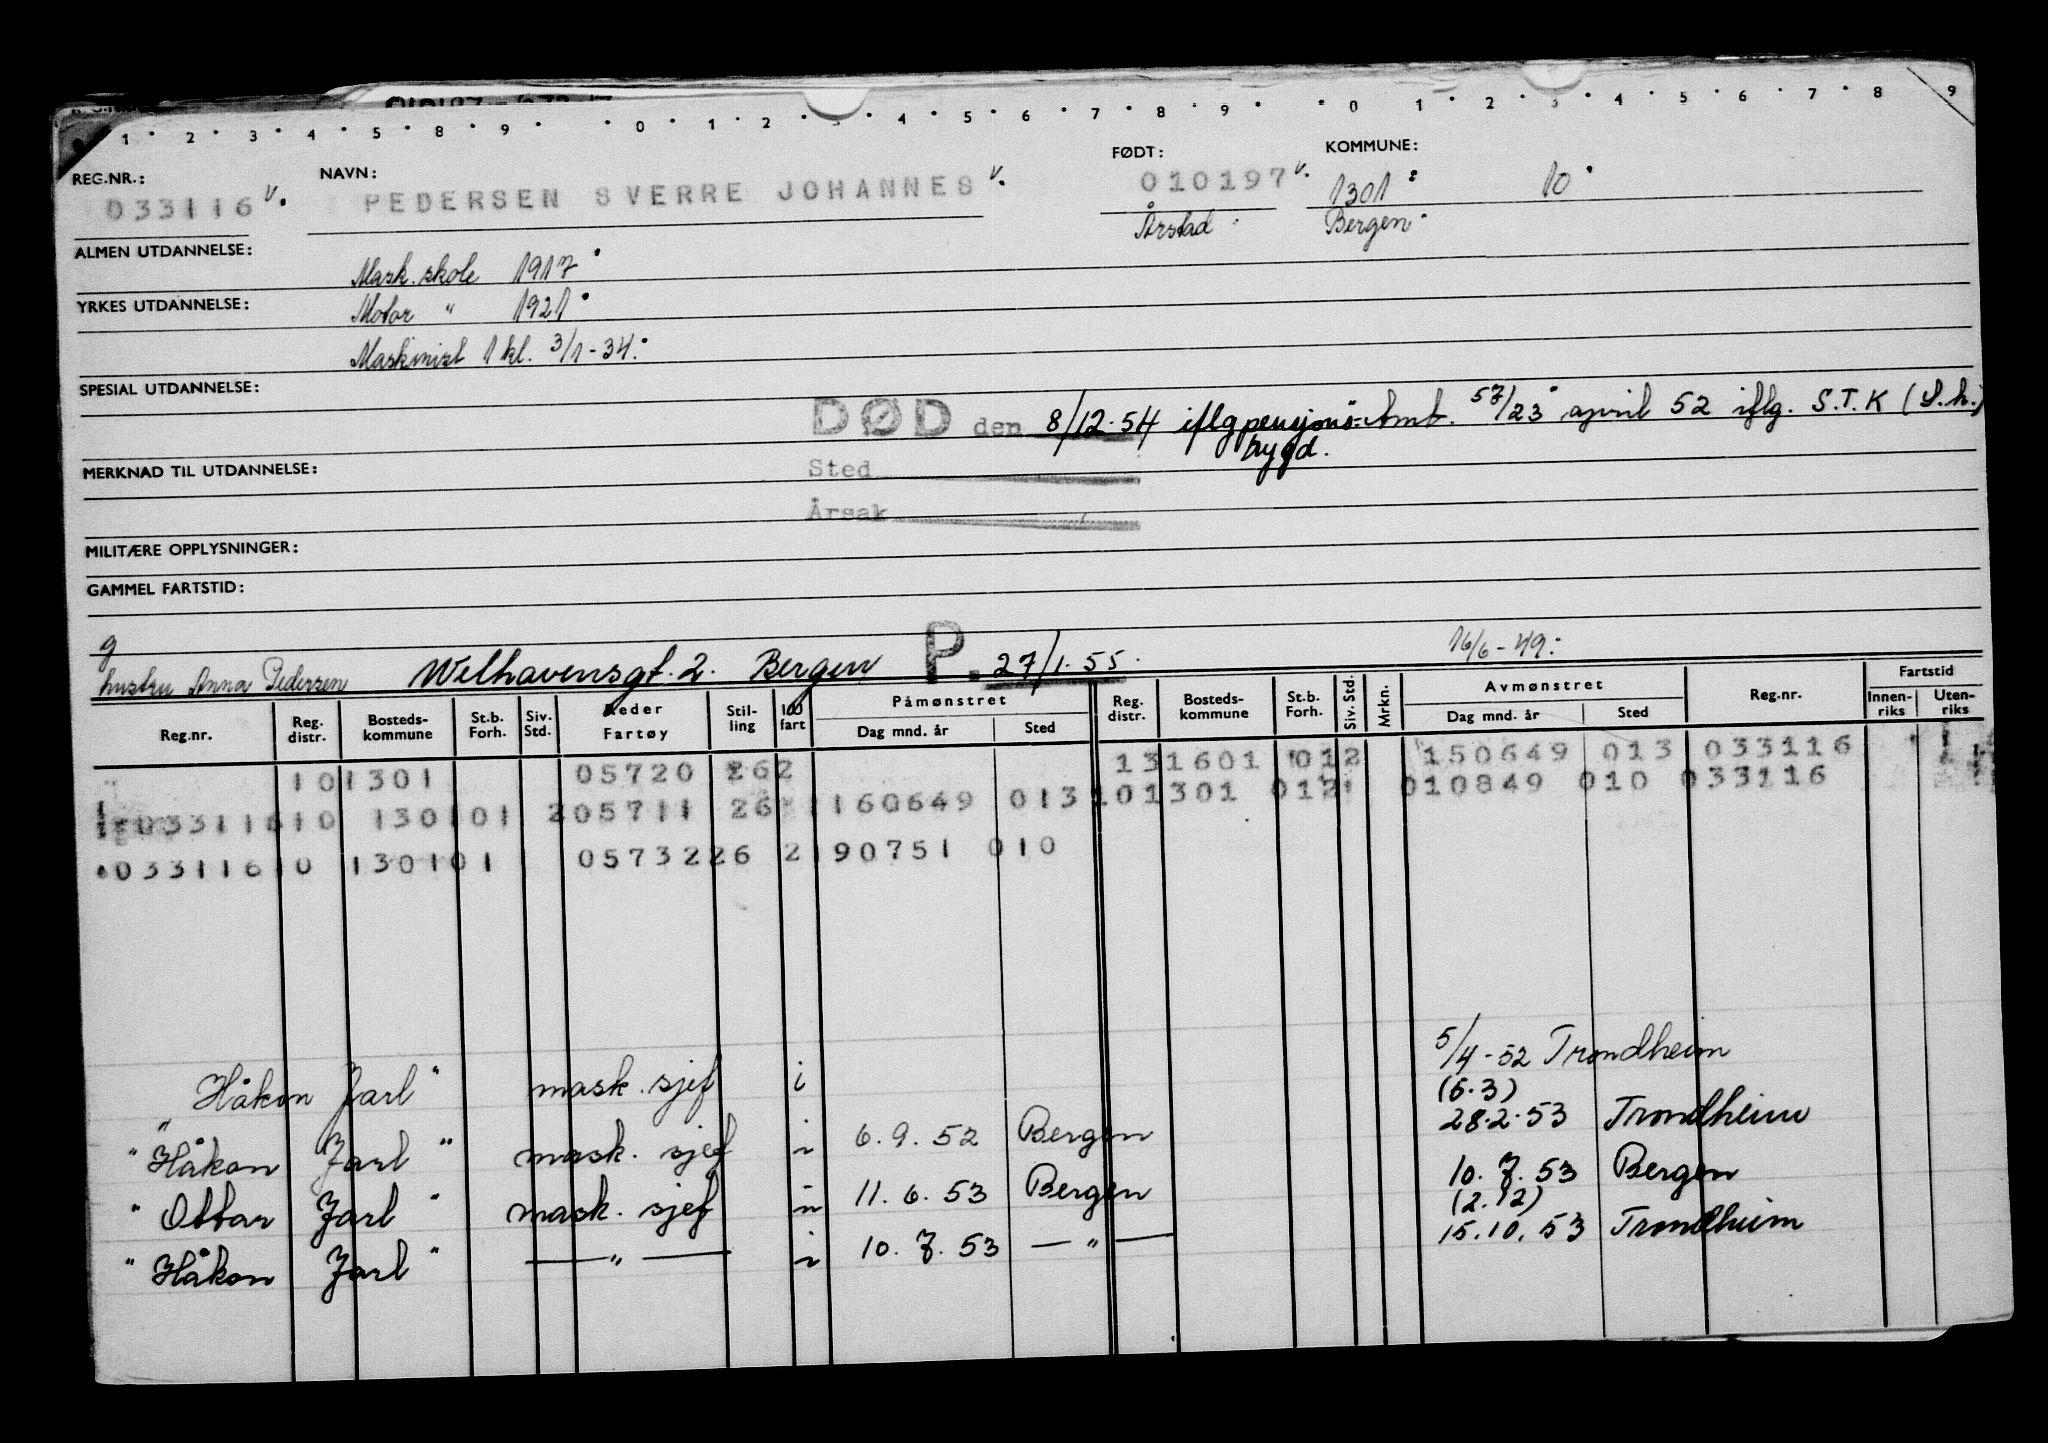 1 2 3 4 5 8 9 0 1 2 3 4 5 6 7 8 9 0 1 2 3 4 5 6 7 8 9
REG.NR.: NAVN: FØDT: KOMMUNE:
033116 v. PEDERSEN SVERRE JOHANNES v. 010197 v. 1301 10
Årstad Bergen
ALMEN UTDANNELSE: Mask. skole 1917
YRKES UTDANNELSE: Motor " 1921
Maskinist 1 kl. 3/1-34.
SPESIAL UTDANNELSE:
DØD den 8/12.54 iflg pensjons= Amb. 57/23 april 52 iflg. S.T.K (S.h.)
trygd.
MERKNAD TIL UTDANNELSE: Sted
Årsak
MILITÆRE OPPLYSNINGER:
GAMMEL FARTSTID:
g
hustru Anna Pedersen Welhavensgt. 2. Bergen P. 27/1.55 16/6-49.
Reg.nr. Reg. distr. Bosteds- kommune St.b. Forh. Siv. Std. Reder Fartøy Stil- ling I/U fart Påmønstret Dag mnd. år Sted Reg. distr. Bosteds- kommune St.b. Forh. Siv. Std. Mrkn. Avmønstret Dag mnd. år Sted Reg.nr. Fartstid Innen- riks Uten- riks
101301 05720 262 131601 012 150649 013 033116
03311610 130101 205711 26 160649 013 101301 012 010849 010 033116
03311610 130101 0573226 2 190751 010
"Håkon Jarl" mask. sjef i 5/4-52 Trondheim
(6.3)
"Håkon Jarl" mask. sjef i 6.9.52 Bergen 28.2.53 Trondheim
"Ottar Jarl" mask. sjef 11.6.53 Bergen 10.7.53 Bergen
(2.12)
"Håkon Jarl" — " — i 10.7.53 — " — 15.10.53 Trondheim